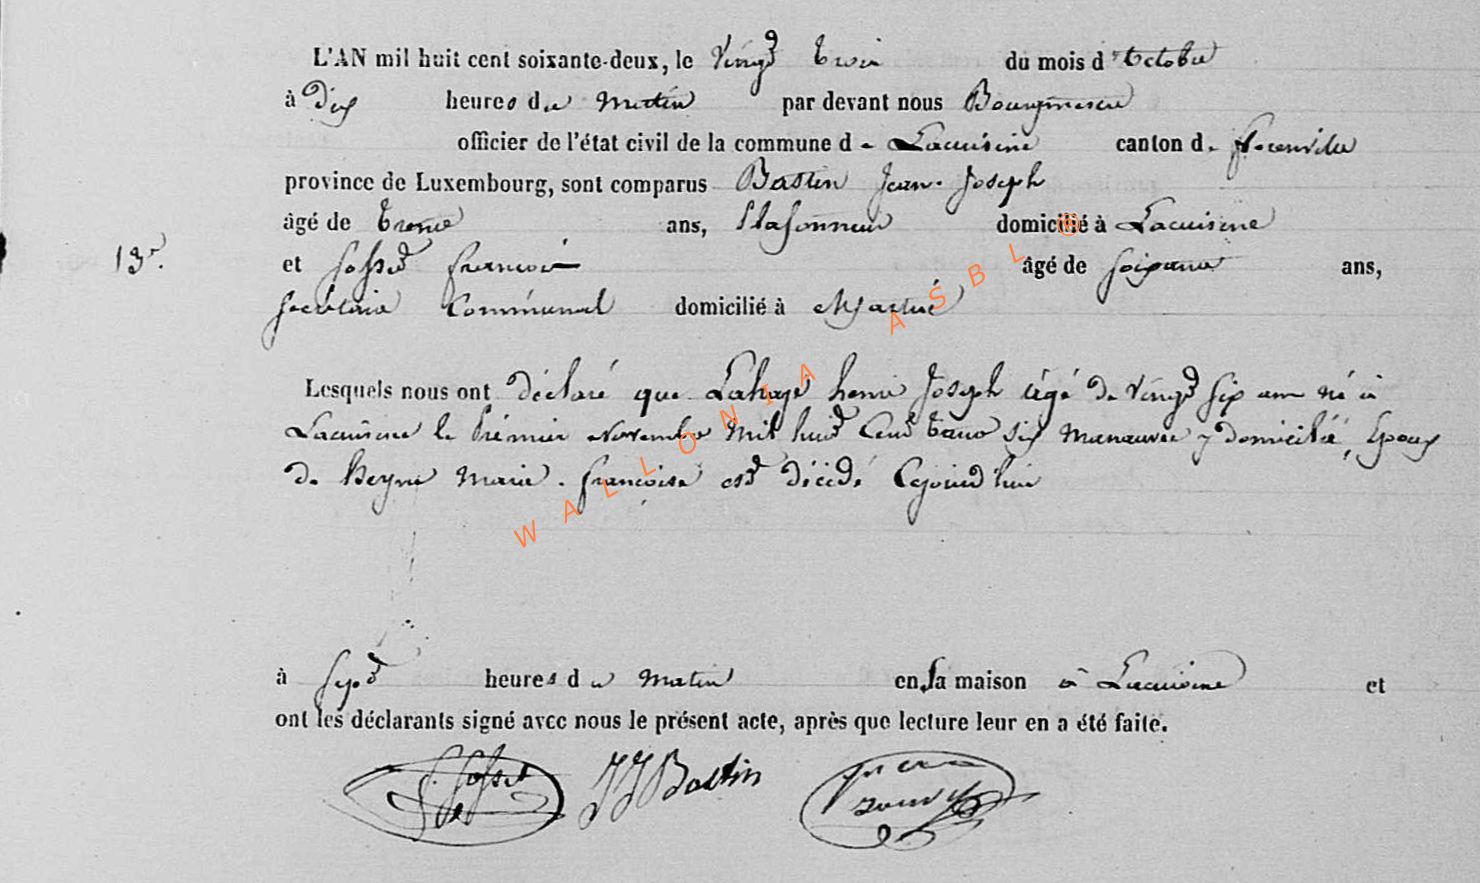 L'AN mil huit cent soixante-deux, le Vingt trois du mois d'Octobre
à Dix heures du Matin par devant nous Bourgmestre
officier de l'état civil de la commune de Lacuisine canton de florenville
province de Luxembourg, sont comparus Bastin Jean-Joseph
âgé de trente ans, Plafonneur domicilié à Lacuisine
13
et Gosset francois âgé de soixante ans,
secrétaire Communal domicilié à Martué
Lesquels nous ont déclaré que Lahaye henri Joseph âgé de Vingt six ans né à
Lacuisine le Prémier Novembre Mil huit Cent trente six Manœuvre y domicilié, Epoux
de Marie-francoise est décédé Cejourd'hui
à sept heures du Matin en sa maison à Lacuisine et
ont les déclarants signé avec nous le présent acte, après que lecture leur en a été faite.
f. Gosset JJ Bastin
WALLONIA ASBL ®